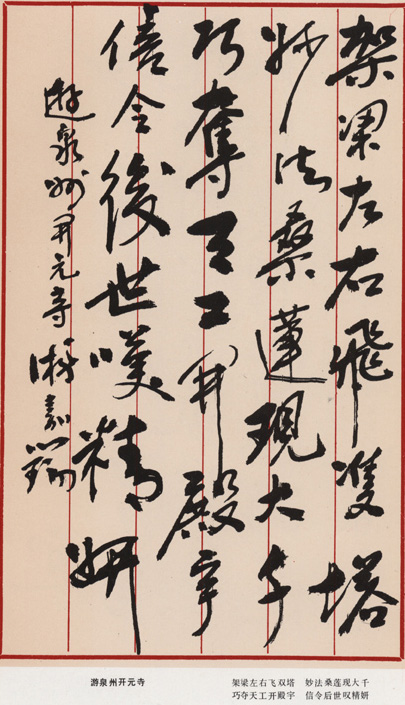 架梁左右飛雙塔
妙法桑蓮現大千
巧奪天工開殿宇
信令後世嘆精妍
遊泉州開元寺 潘嘉瑞
游泉州开元寺
架梁左右飞双塔 妙法桑莲现大千
巧夺天工开殿宇 信令后世叹精妍